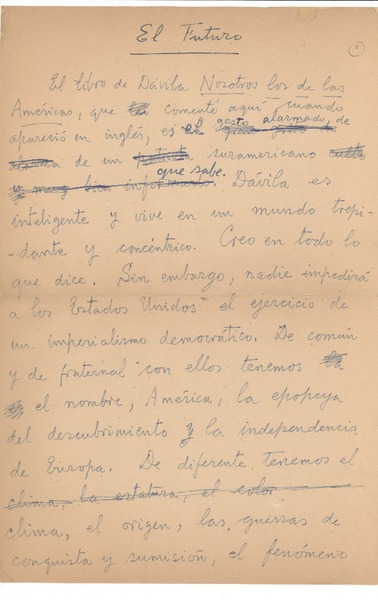 El Futuro
1
El libro de Dávila Nosotros los de las
Américas, que comenté aquí cuando
apareció en inglés, es el gesto alarmado, de
de un suramericano
que sabe. Dávila es
inteligente y vive en un mundo trepi-
-dante y concéntrico. Creo en todo lo
que dice. Sin embargo, nadie impedirá
a los Estados Unidos el ejercicio de
un imperialismo democrático. De común
y de fraternal con ellos tenemos la
el nombre, América, la epopeya
del descubrimiento y la independencia
de Europa. De diferente, tenemos el
clima, la estatura, el color,
clima, el origen, las guerras de
conquista y sumisión, el fenómeno